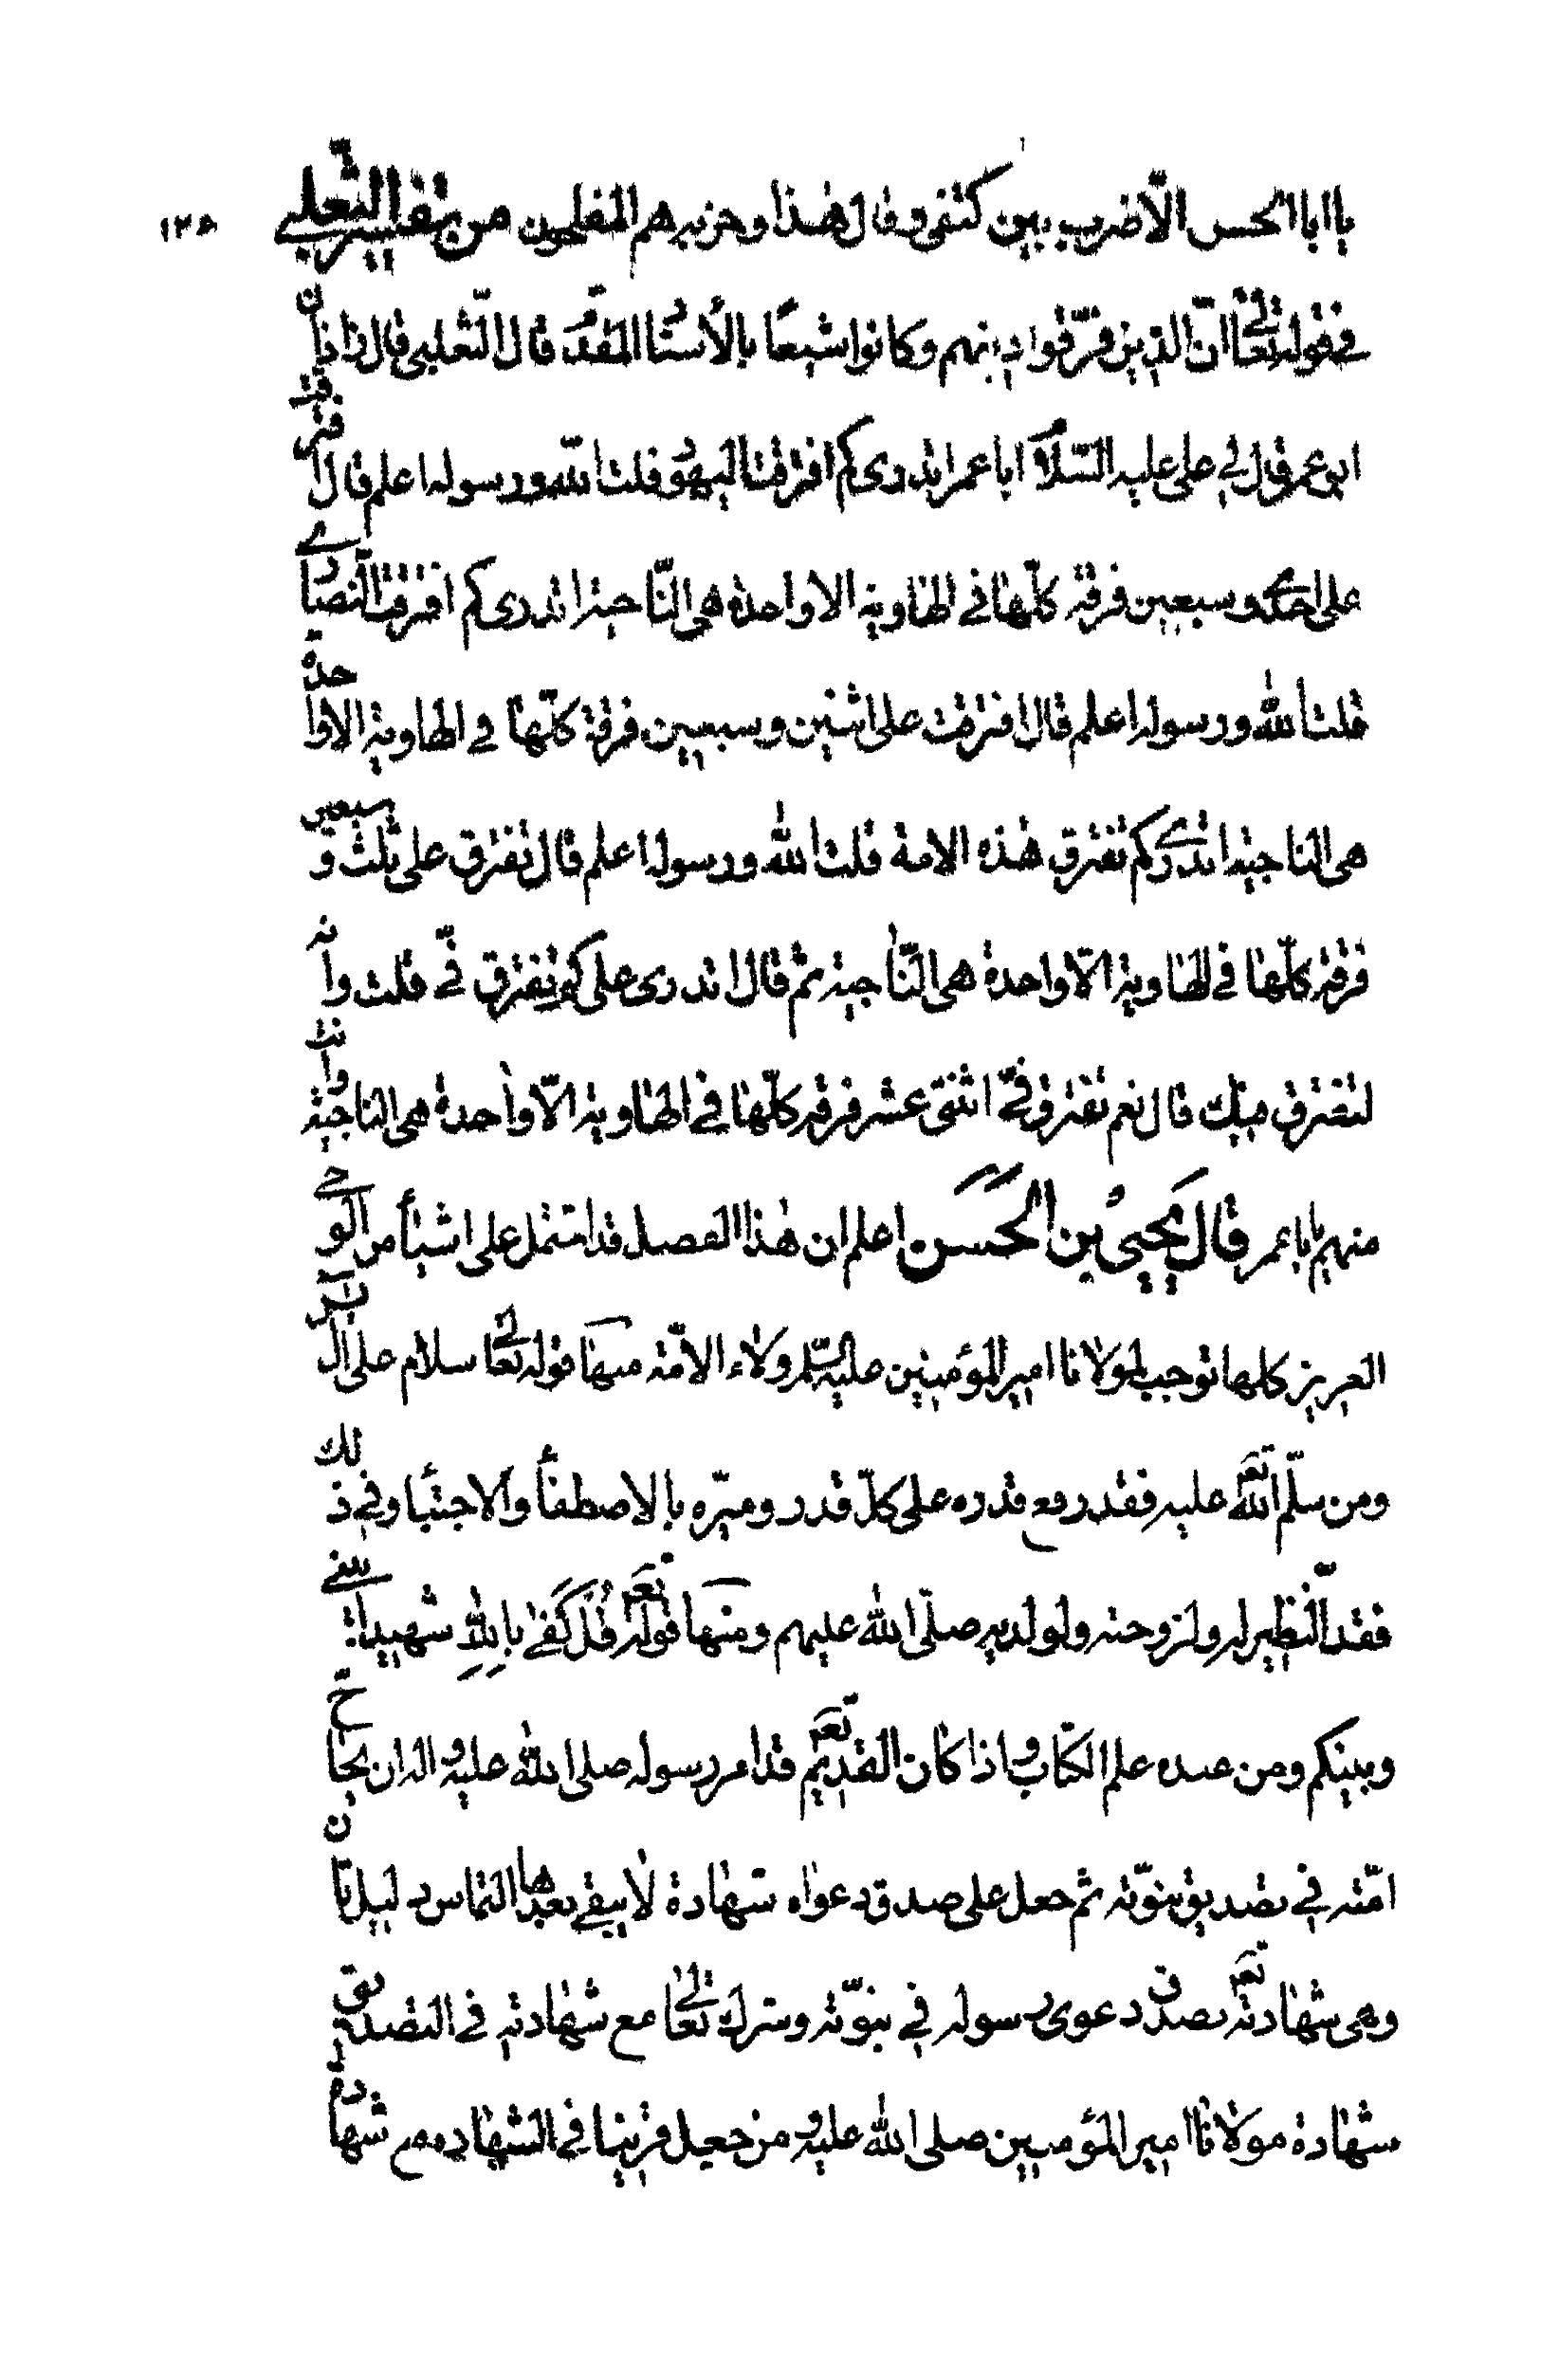 يا ابا الحسن الّا ضرب بين كتفى وقال هذا وحزبه هم المفلحون من تفسير الثّعلبى ١٢۶
فى قوله تعالى انّ الذين فرّقوا دينهم وكانوا شيعًا بالأسناد المقدّم قال الثّعلبى قال زاذان
ابو عمر قال لى على عليه السّلام ابا عمر اتدرى كم افترقت اليهود قلت الله ورسوله اعلم قال افترقت
على احدى وسبعين فرقة كلّها فى الهاوية الا واحدة هى النّاجية اتدرى كم افترقت النّصارى
قلت الله ورسوله اعلم قال افترقت على اثنين وسبعين فرقة كلّها فى الهاوية الا واحدة
هى الناجية اتدرى كم تفترق هذه الامة قلت الله ورسوله اعلم قال تفترق على ثلث وسبعين
فرقة كلّها فى الهاوية الّا واحدة هى النّاجية ثم قال اتدرى على كم تفترق فىّ قلت وانّه
لتفترق فيك قال نعم تفترق فىّ اثنتى عشر فرقه كلّها فى الهاوية الّا واحدة هى الناجية وانت
منهم يا با عمر قال يحيى بن الحسن اعلم ان هذا الفصل قد اشتمل على اشيأ من الوحى
العزيز كلها توجب لمولانا امير المؤمنين عليه السّلم ولاء الامّة منها قوله تعالى سلام على ال ياسين
ومن سلّم الله تعه عليه فقد رفع قدره على كلّ قدر وميّزه بالاصطفأ والاجتبا وفى ذلك
فقد النّظير له ولزوجته ولولديه صلّى الله عليهم ومنها قوله تعه قُل كَفى بِاللهِ شهيداً بينى
وبينكم ومن عنده علم الكتاب واذا كان القديم تعه قد امر رسوله صلى الله عليه واله ان يحاجّ
امّته فى تصديق نبوّته ثم جعل على صدق دعواه شهادة لا يبقى بعدها التماس دليل ثان
وهى شهادته تعه بصدق دعوى رسوله فى نبوّته وشرك تعالى مع شهادته فى التصديق
شهادة مولانا امير المؤمنين صلى الله عليه ومن جعل قرينا فى الشهاده مع شهادة